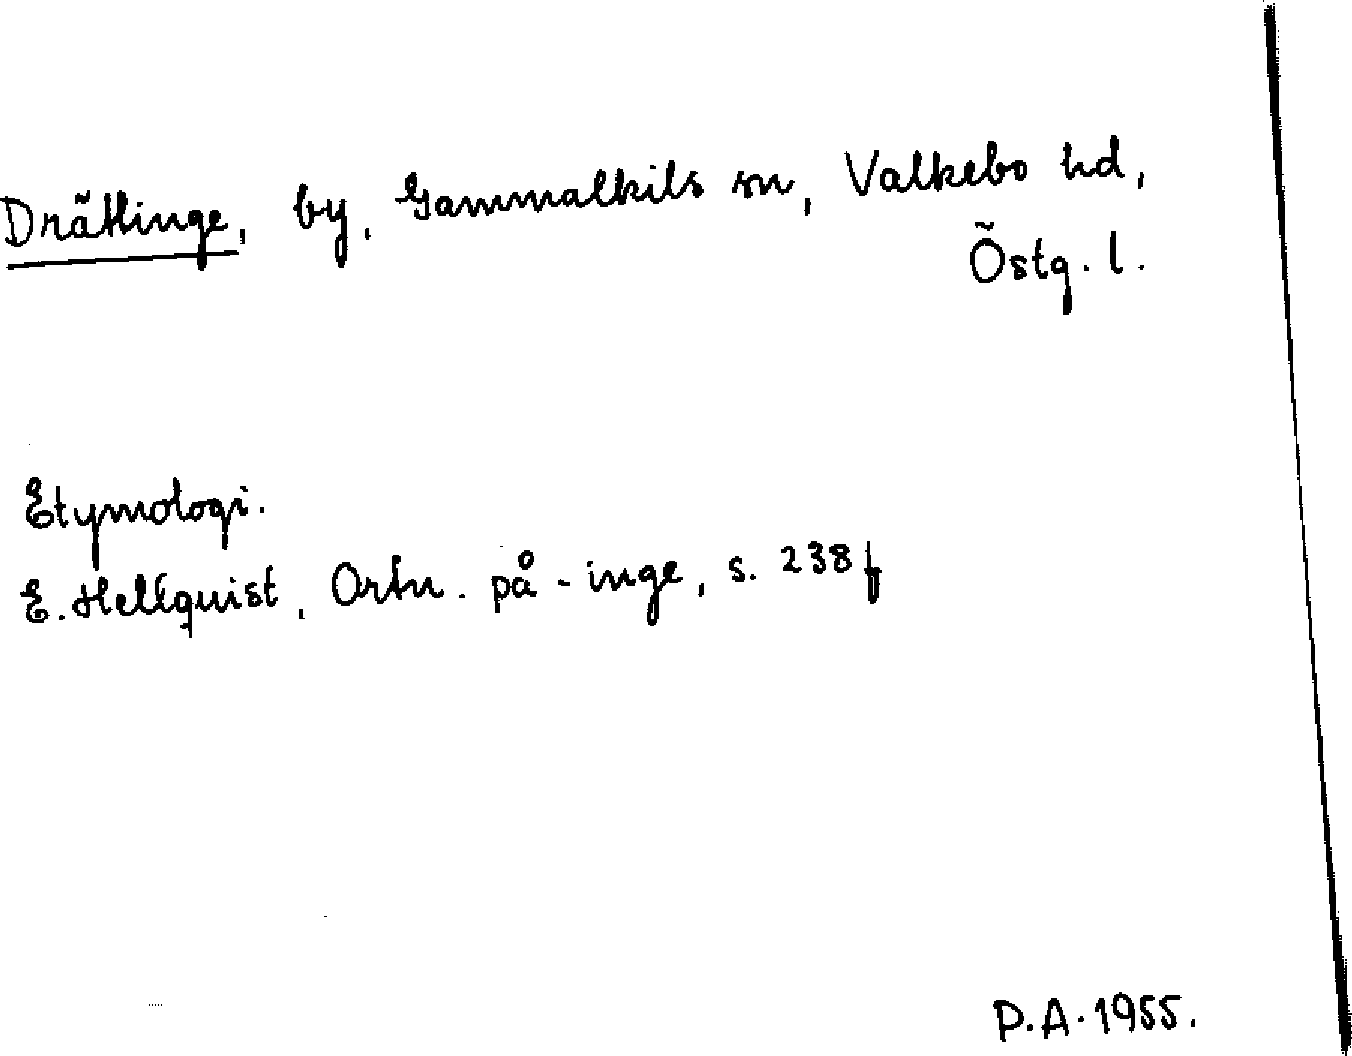 Drättinge, by, Gammalkils sn, Valkebo hd,
Östg. l.
Etymologi.
E. Hellquist, Ortn. på -inge, s. 238 f
P.A. 1955.